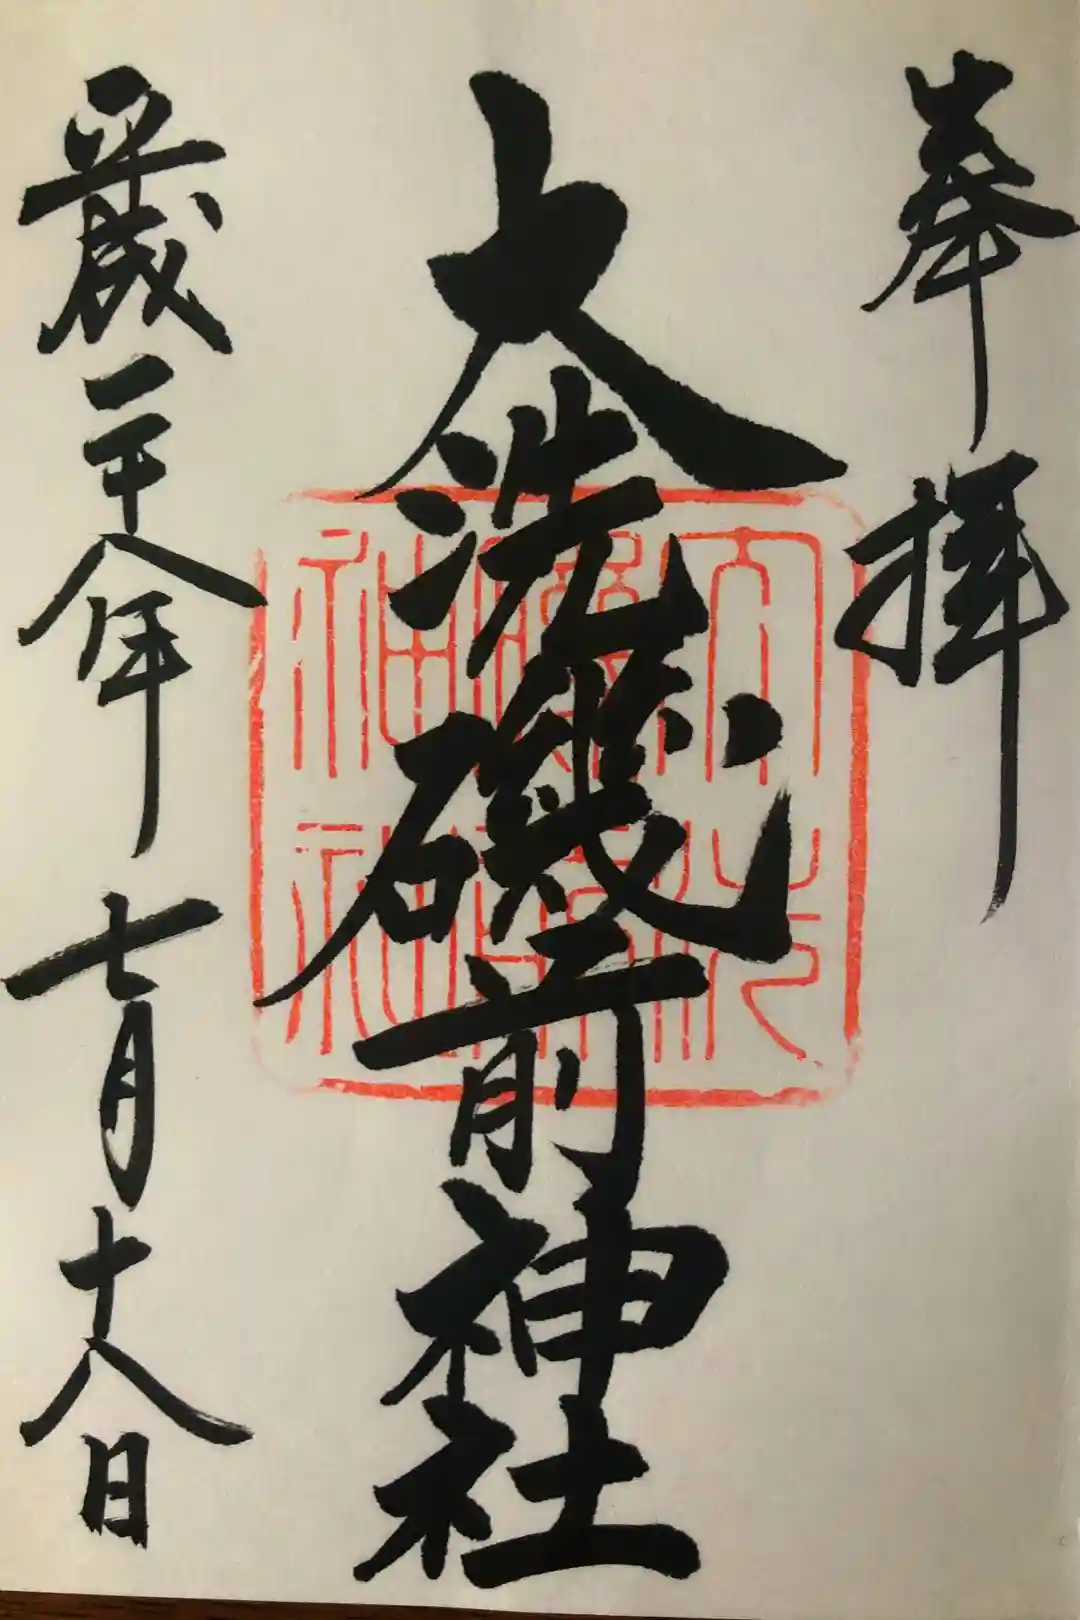 奉拝
大洗磯前神社
平成二十八年七月十八日
大洗
磯前
神社